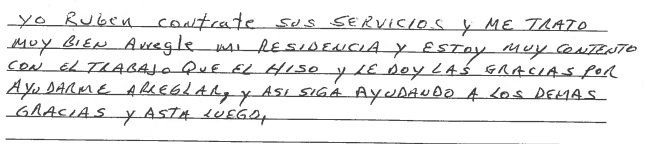 yo Ruben contrate SUS SERVICIOS y ME TRATO
MUY BIEN Arregle MI RESIDENCIA y ESTOY MUY CONTENTO
CON EL TRABAJO QUE EL HISO y LE DOY LAS GRACIAS POR
AYUDARME ARREGLAR, y ASI SIGA AYUDANDO A LOS DEMAS
GRACIAS y ASTA LUEGO,